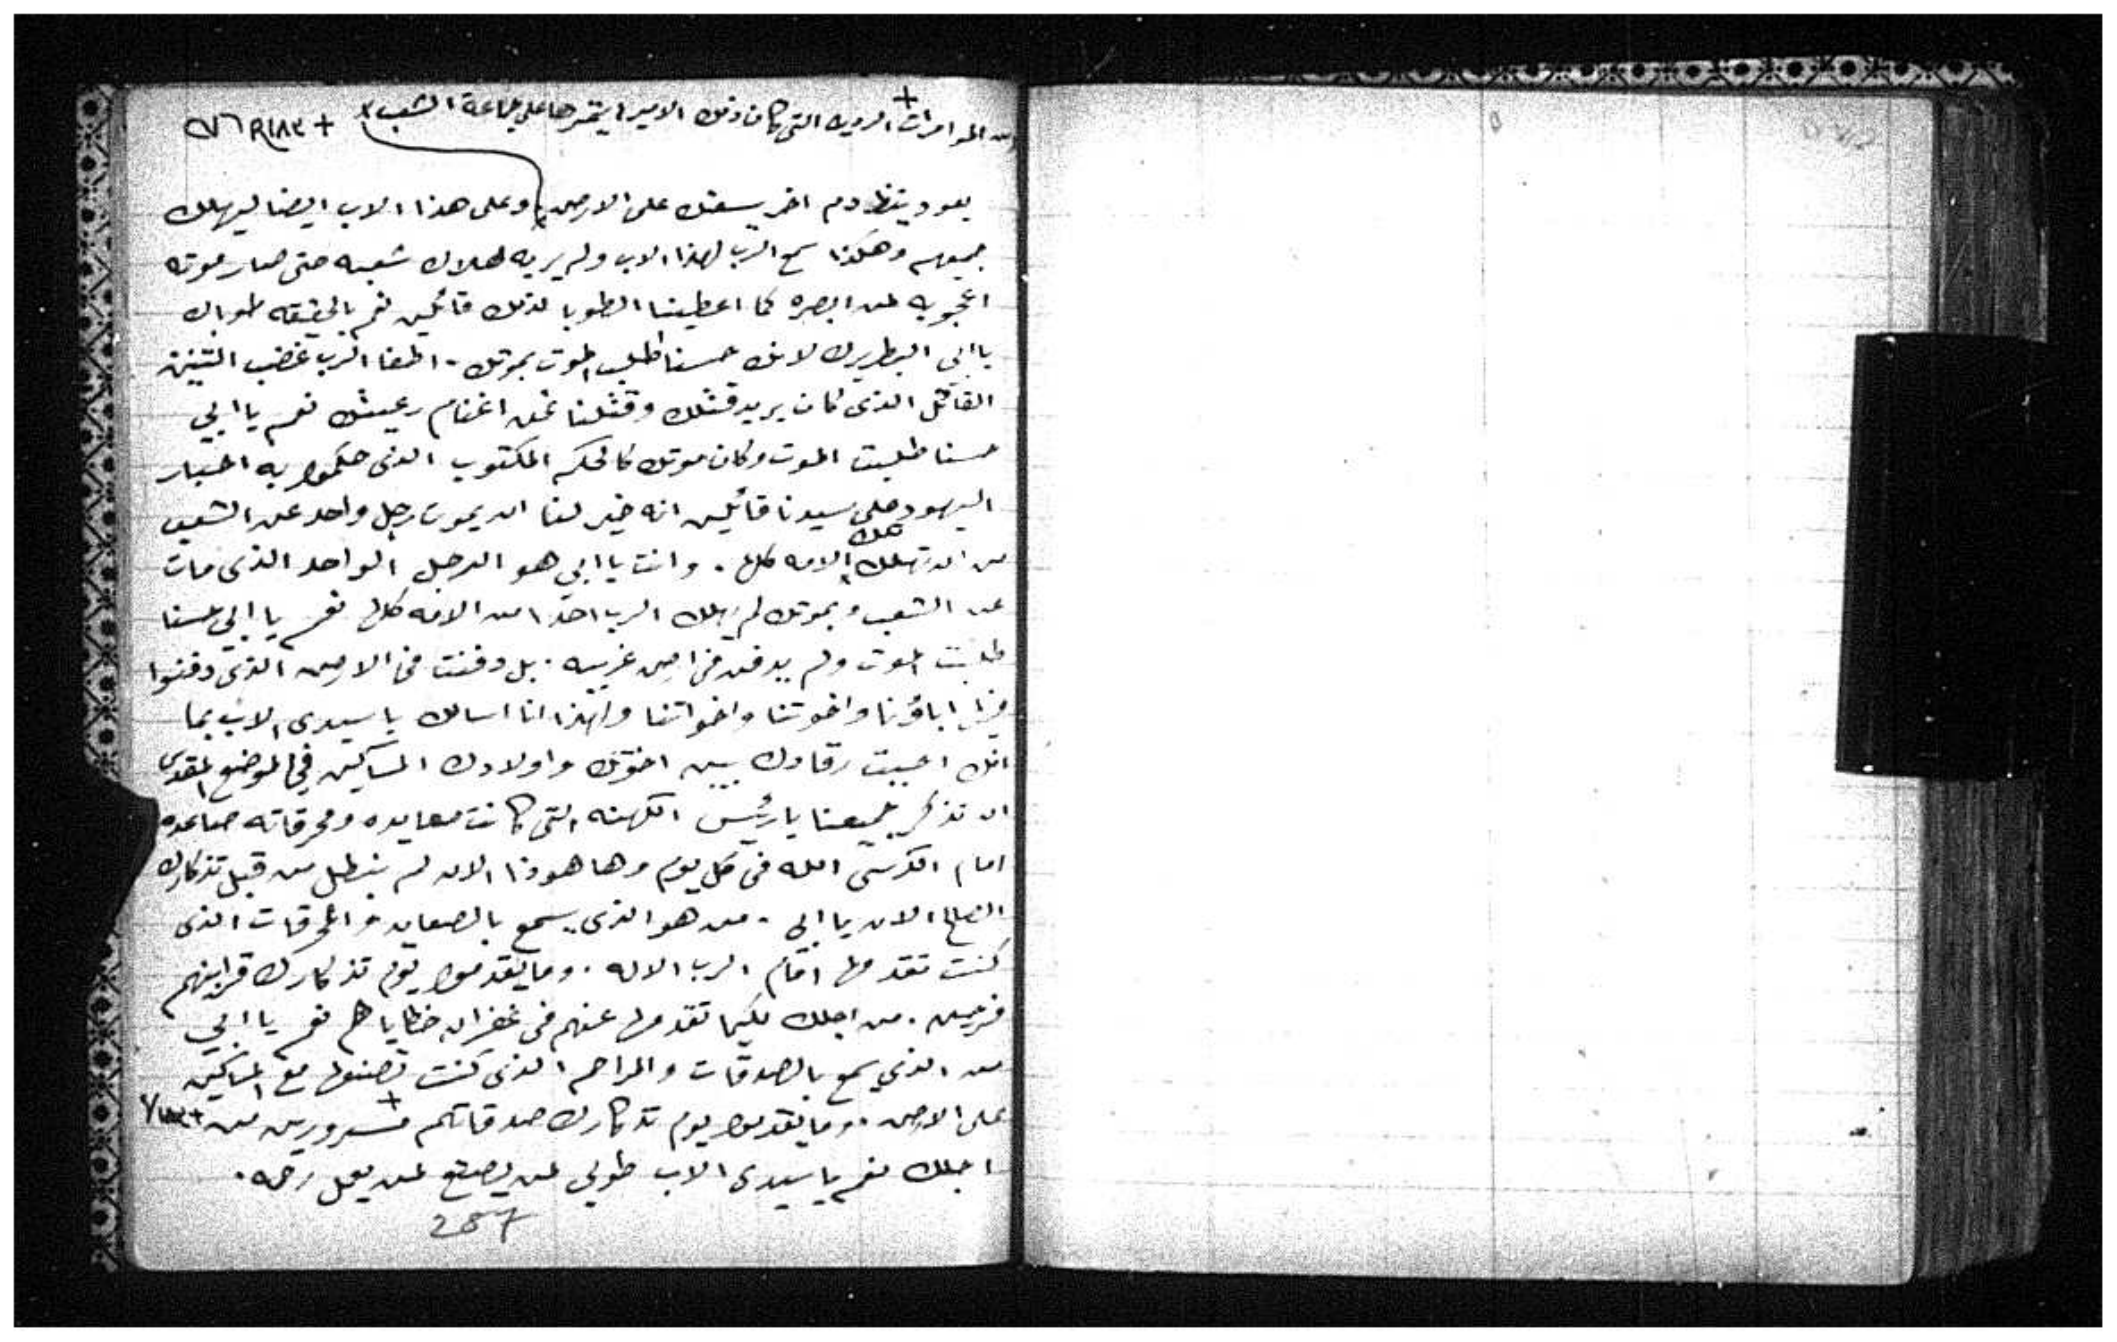 من الموامرات الرديه التى كان ذلك الامير ايتمرها على جماعة الشعب
يعود ينظر دم اخر يسفك على الارض وعلى هذا الاب ايضا ليهلك
جميعهم وهكذا سمع الرب لهذا الاب ولم يريه هلاك شعبه حتى صار موته
اعجوبه لمن ابصره كما اعطينا الطوبا لذلك قائلين نعم بالحقيقه طوباك
يا ابى البطريرك لانك حسنا طلبت الموت بموتك. اطفا الرب غضب التنين
القاتل الذى كان يريد قتلك وقتلنا نحن اغنام رعيتك نعم يا ابي
حسنا طلبت الموت وكان موتك كالحكم المكتوب الذى حكموا به احبار
اليهود على سيدنا قائلين انه خير لنا ان يموت رجل واحد عن الشعب
من ان تهلك الامه كلها. وانت يا ابي هو الرجل الواحد الذى مات
عن الشعب وبموتك لم يهلك الرب احدا من الامه كلها نعم يا ابي حسنا
طلبت الموت ولم يدفن فى ارض غريبه. بل دفنت فى الارض الذى دفنوا
فيها اباؤنا واخوتنا واخواتنا ولهذا انا اسالك يا سيدى الاب بما
انك احببت رقادك بين اخوتك واولادك المساكين في الموضع المقدس
ان تذكر جميعنا يا رئيس الكهنه التى كانت صعايده ومحرقاته صاعده
امام كرسى الله فى كل يوم وها هوذا الان لم يبطل من قبل تذكارك
الصالح الان يا ابى. من هو الذى يسمع بالصعايد والمحرقات الذى
كنت تقدمها امام الرب الاله. وما يقدموا يوم تذكارك قرابينهم
فرحين. من اجلك لكيما تقدمها عنهم فى غفران خطاياهم نعم يا ابي
من الذي يسمع بالصدقات والمراحم الذى كنت تصنعها مع المساكين
على الارض. وما يقدموا يوم تذكارك صدقاتهم مسرورين من
اجلك نعم يا سيدى الاب طوبي لمن يصنع لمن يعمل رحمه.
287